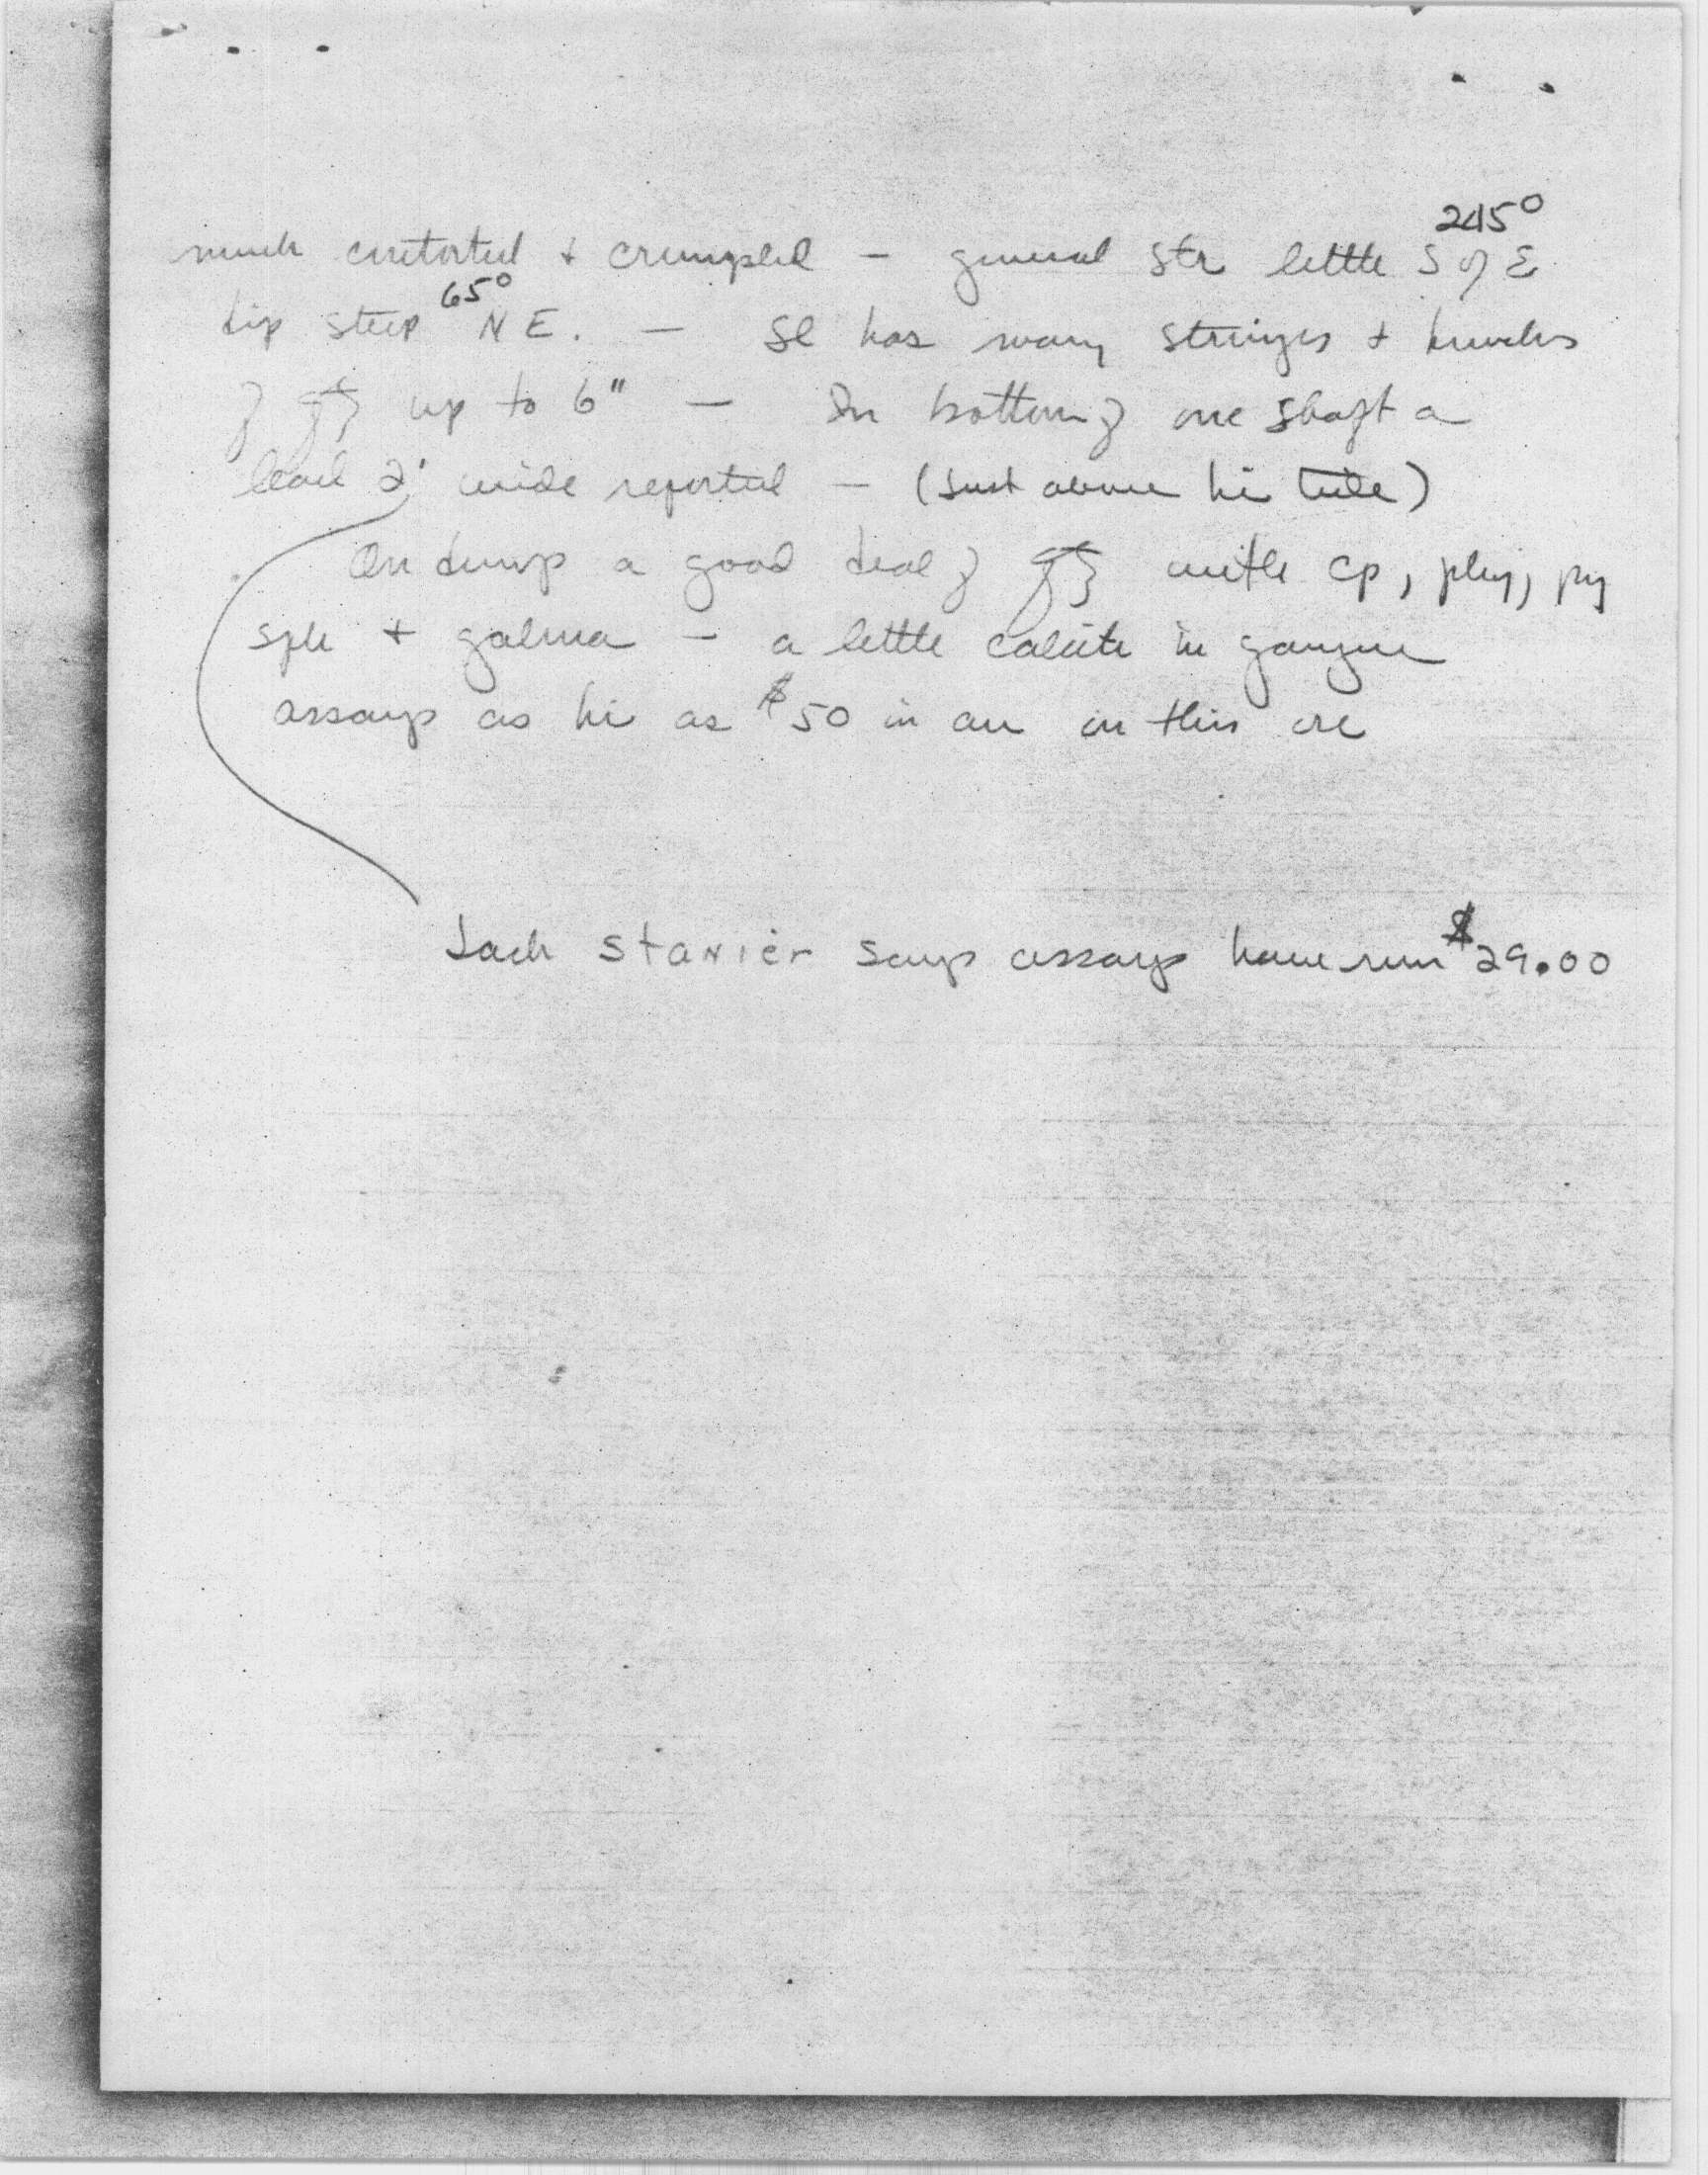 245°
much contorted + crumpled - general str little S of E
65°
dip steep NE. - Sl has many stringers + bunches
of qtz up to 6" - In bottom of one shaft a
lead 2' wide reported - (Just above hi tide)
On dump a good deal of qtz with cp, phy, py
sple + galena - a little calcite in gangue
assays as hi as $50 in au in this ore
Jack Stanier says assays have run $29.00